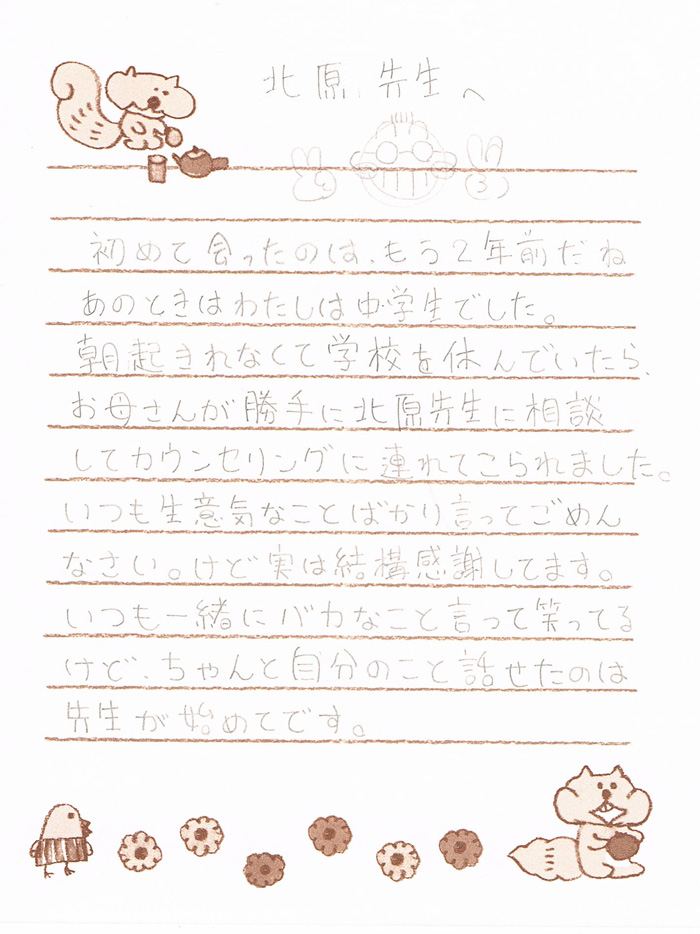 北原先生へ
初めて会ったのは、もう2年前だね
あのときはわたしは中学生でした。
朝起きれなくて学校を休んでいたら、
お母さんが勝手に北原先生に相談
してカウンセリングに連れてこられました。
いつも生意気なことばかり言ってごめん
なさい。けど実は結構感謝してます。
いつも一緒にバカなこと言って笑ってる
けど、ちゃんと自分のこと話せたのは
先生が始めてです。